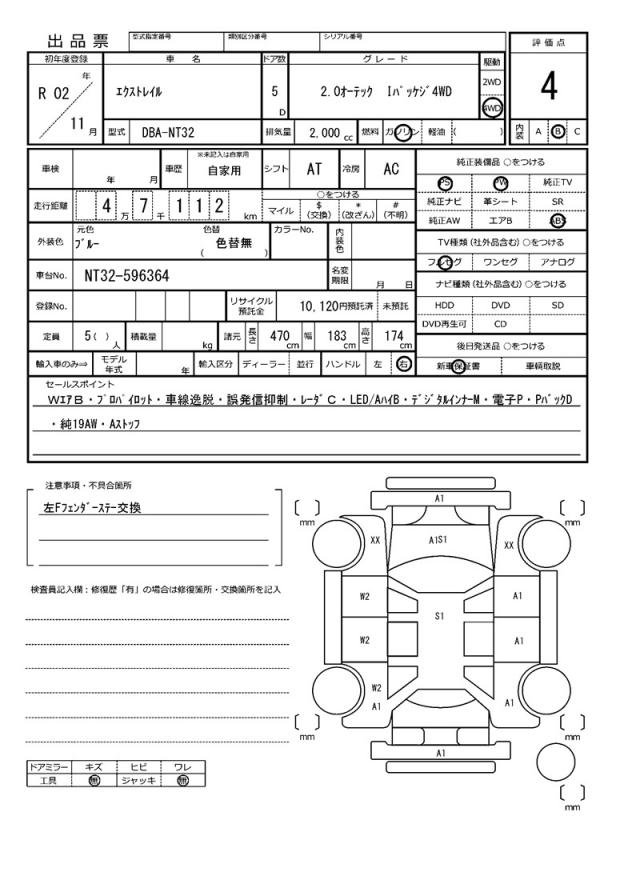 出品票 型式指定番号 類別区分番号 シリアル番号 評価点
初年度登録 車名 ドア数 グレード 駆動
R 02 年 エクストレイル 5 D 2.0オーテック Iパッケジ4WD 2WD 4WD 4
11 月 型式 DBA-NT32 排気量 2,000 cc 燃料 ガソリン 軽油 ( ) 内装 A B C
車検 年 月 車歴 ※未記入は自家用 自家用 シフト AT 冷房 AC 純正装備品 ○をつける
PS PW 純正TV
走行距離 4 万 7 千 1 1 2 km ○をつける
マイル $(交換) *(改ざん) #(不明) 純正ナビ 革シート SR
純正AW エアB ABS
外装色 元色 ブルー 色替 ( 色替無 ) カラーNo. 内装色 TV種類 (社外品含む) ○をつける
フルセグ ワンセグ アナログ
車台No. NT32-596364 名変期限 月 日 ナビ種類 (社外品含む) ○をつける
登録No. リサイクル預託金 10,120円預託済 未預託 HDD DVD SD
DVD再生可 CD
定員 5( ) 人 積載量 kg 諸元 長さ 470 cm 幅 183 cm 高さ 174 cm 後日発送品 ○をつける
輸入車のみ⇒ モデル年式 年 輸入区分 ディーラー 並行 ハンドル 左 右 新車保証書 車輌取説
セールスポイント
WエアB・プロパイロット・車線逸脱・誤発信抑制・レーダC・LED/AハイB・デジタルインナーM・電子P・PバックD
・純19AW・Aストッフ
注意事項・不具合箇所
左Fフェンダーステー交換
検査員記入欄：修復歴「有」の場合は修復箇所・交換箇所を記入
A1
mm mm
XX A1S1 XX
W2 A1
S1
W2 A1
W2
A1 A1
mm mm
A1
mm
ドアミラー キズ ヒビ ワレ
工具 無 ジャッキ 無